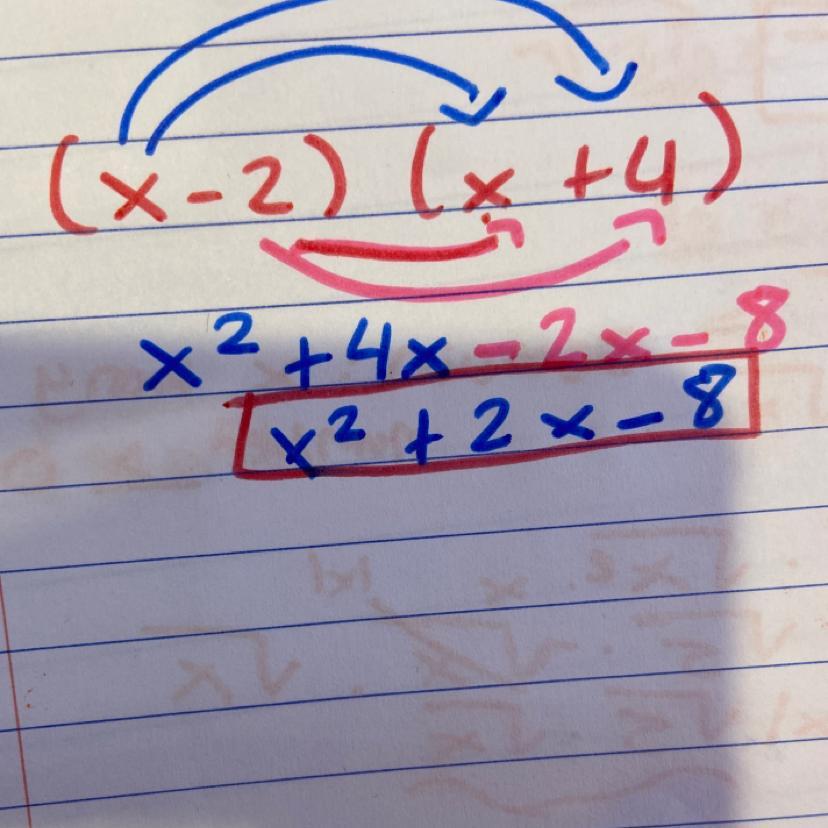 (x-2) (x+4)
x² +4x -2x - 8
x² + 2x - 8